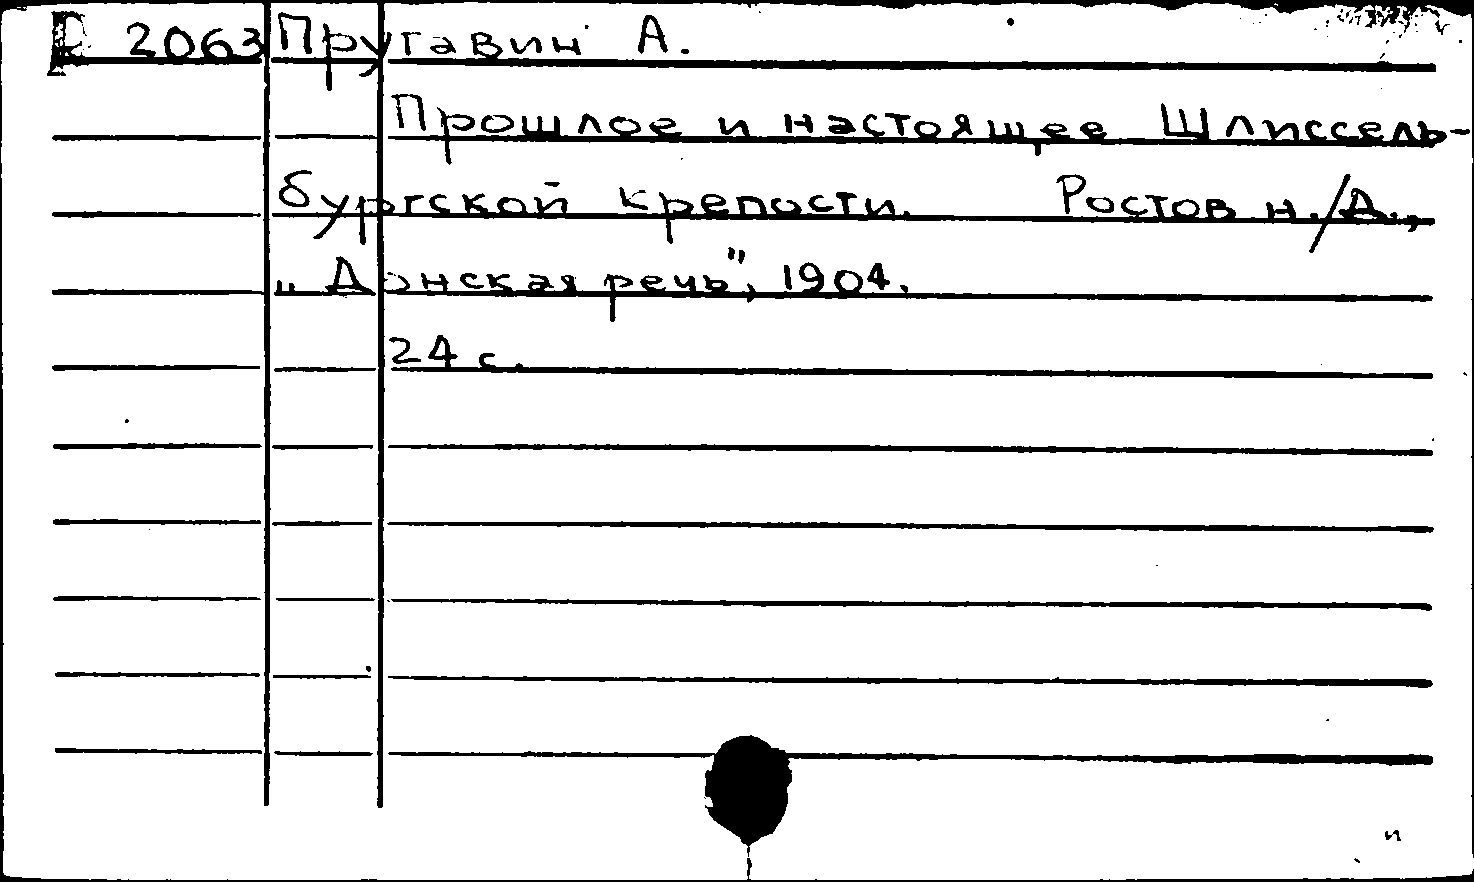 Р 2063 Пругавин А.
Прошлое и настоящее Шлиссель-
бургской крепости. Ростов н./Д.,
„Донская речь", 1904.
24 с.
и